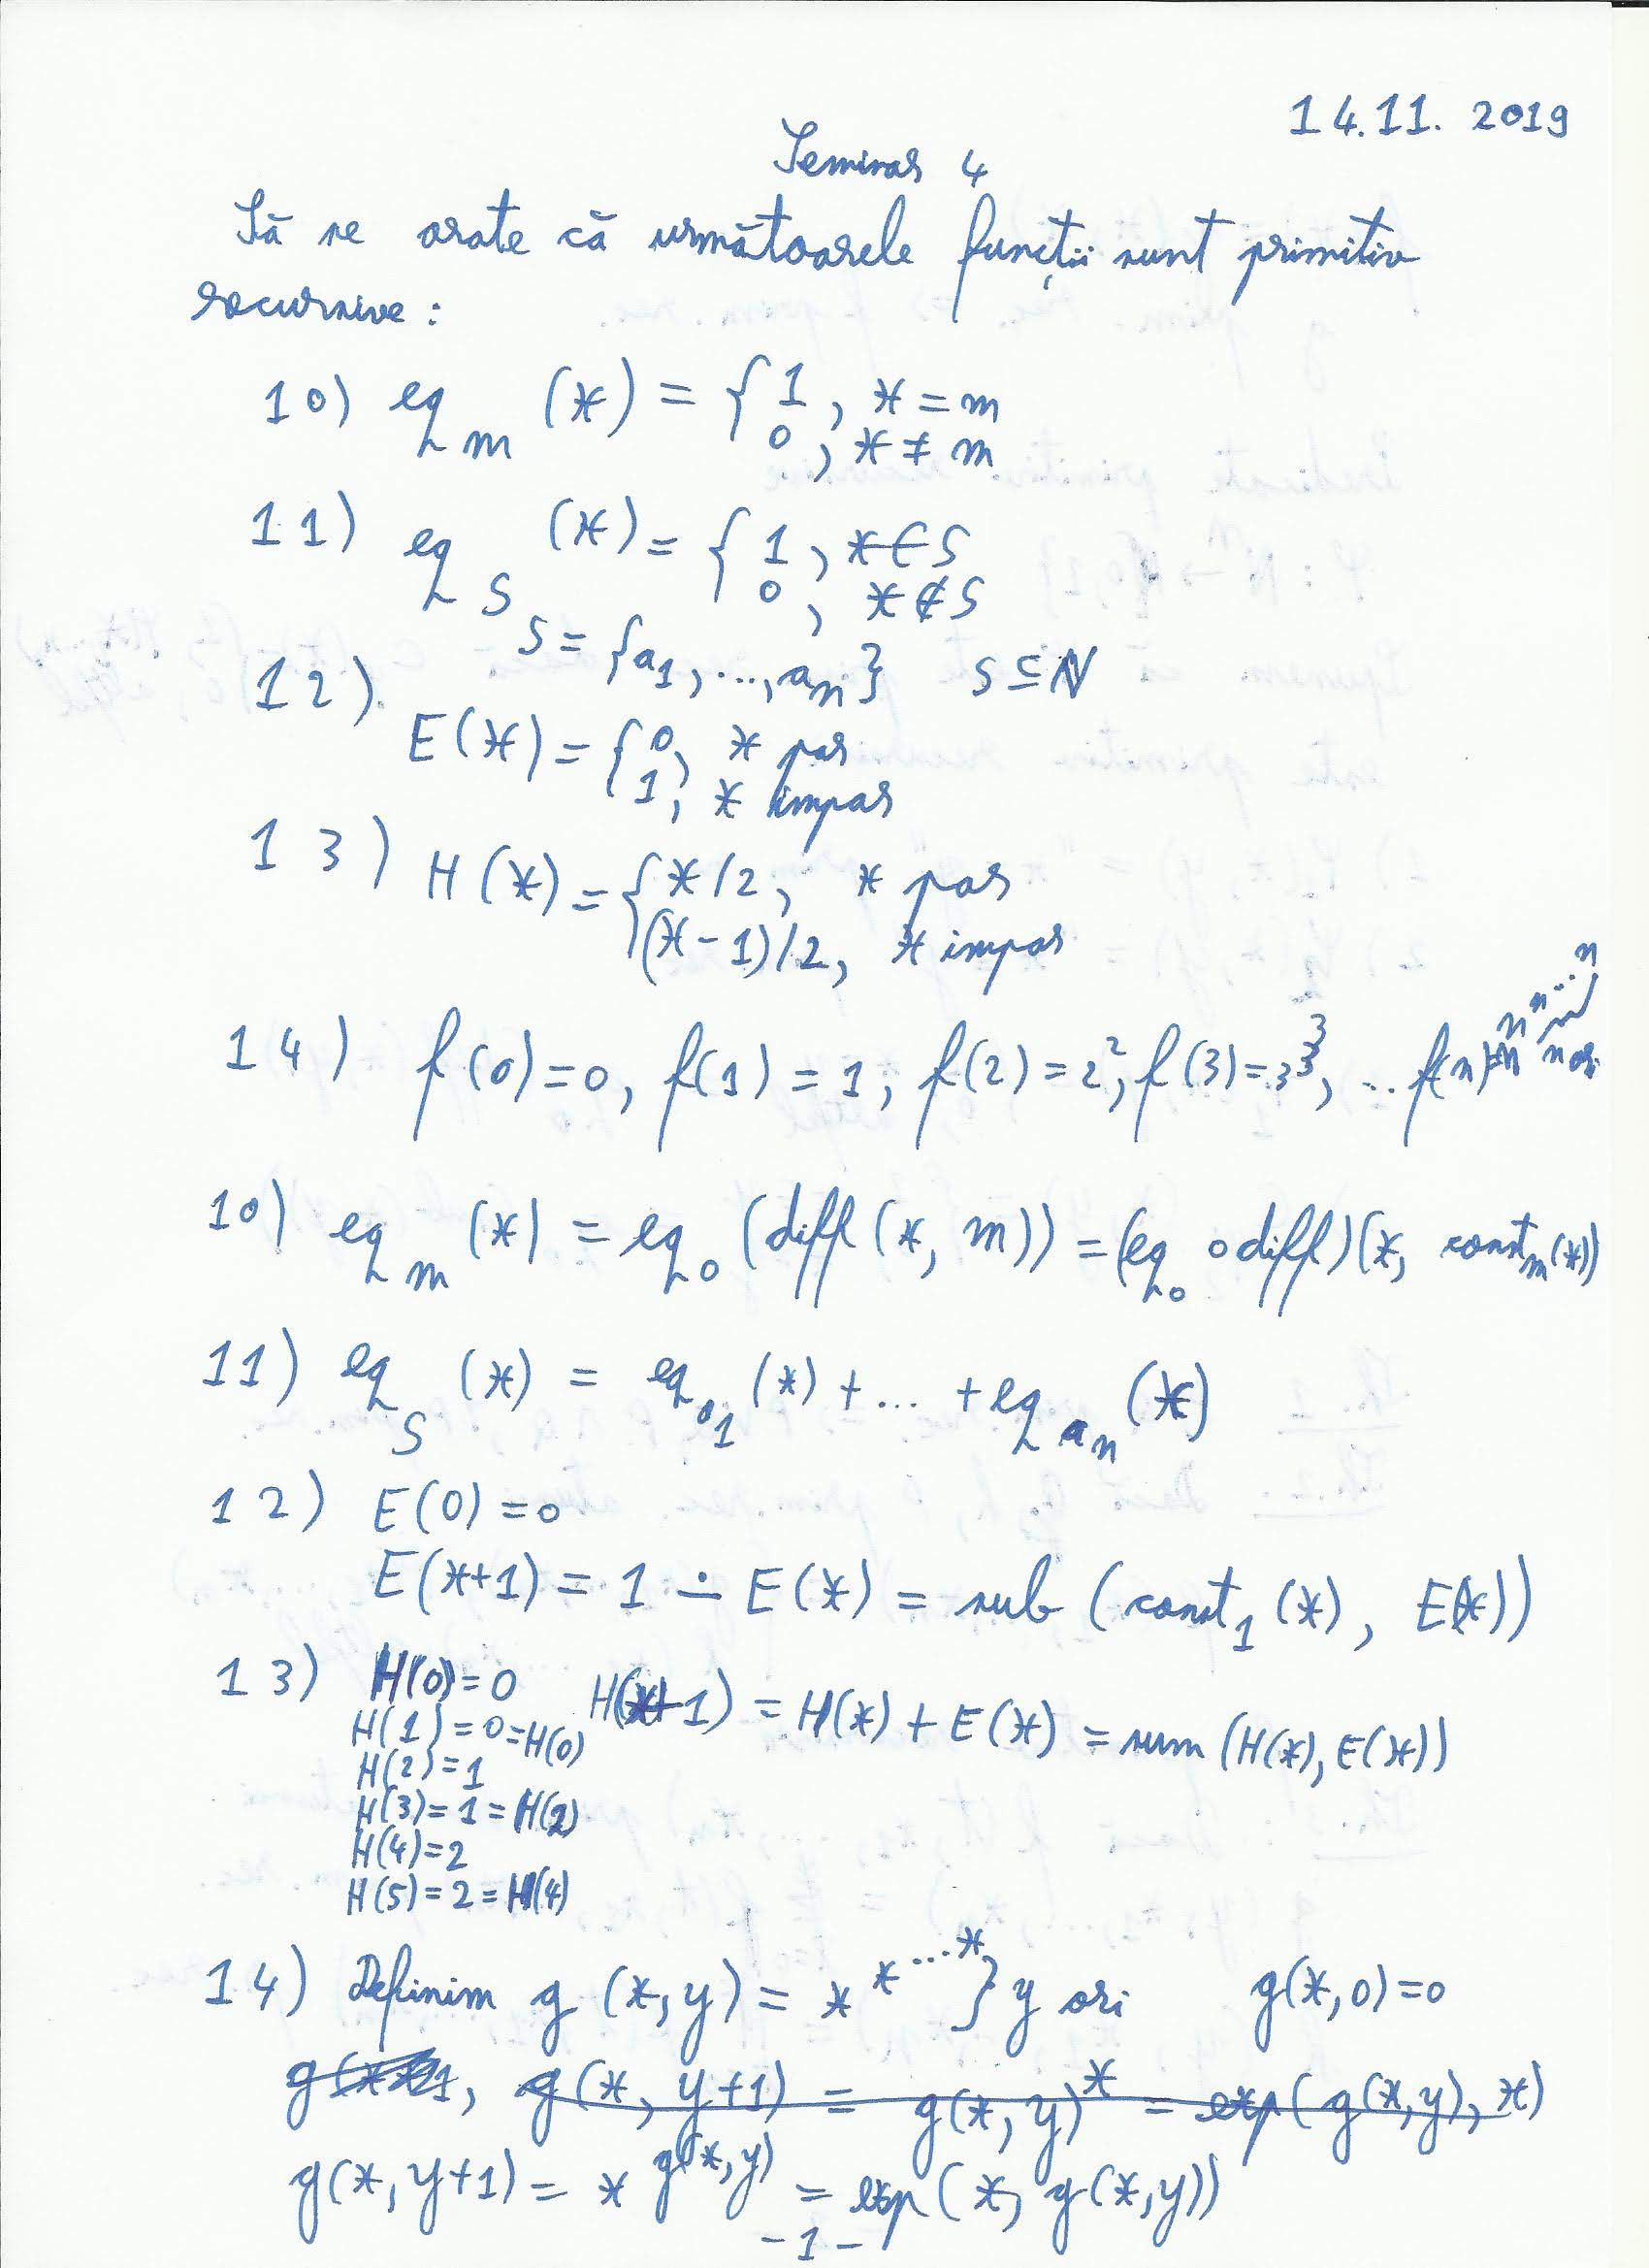 14.11. 2019
Seminar 4
Să se arate că următoarele funcții sunt primitiv
recursive :
10) eq_m (x) = { 1 , x = m
0 , x ≠ m
11) eq_S (x) = { 1 , x ∈ S
0 , x ∉ S
S = {a_1, ..., a_n} S ⊆ N
12) E(x) = { 0, x par
1, x impar
13) H(x) = { x/2, x par
(x-1)/2, x impar
14) f(0)=0, f(1)=1, f(2)=2^2, f(3)=3^3^3, ... f(n)=n^n^n^...^n n ori
10) eq_m (x) = eq_0 (diff(x, m)) = (eq_0 ∘ diff)(x, const_m(x))
11) eq_S (x) = eq_a_1 (x) + ... + eq_a_n (x)
12) E(0) = 0
E(x+1) = 1 ∸ E(x) = sub (const_1 (x), E(x))
13) H(0)=0 H(x+1) = H(x) + E(x) = sum (H(x), E(x))
H(1)=0=H(0)
H(2)=1
H(3)=1=H(2)
H(4)=2
H(5)=2=H(4)
14) Definim g (x,y) = x^x^...^x } y ori g(x,0)=0
g(x, y+1) = g(x, y)^x = exp( g(x,y), x)
g(x, y+1) = x^g(x,y) = exp(x, g(x,y))
-1-